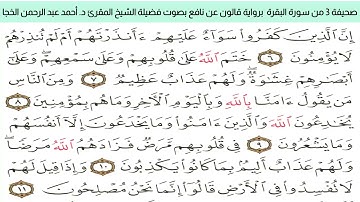 صحيفة 3 من سورة البقرة برواية قالون عن نافع بصوت فضيلة الشيخ المقرئ د. أحمد عبد الرحمن الخجا
إِنَّ ٱلَّذِينَ كَفَرُواْ سَوَآءٌ عَلَيْهِمُۥٓ ءَآنذَرْتَهُمُۥٓ أَمْ لَمْ تُنذِرْهُمْ
لَا يُؤْمِنُونَ ٦ خَتَمَ ٱللَّهُ عَلَىٰ قُلُوبِهِمْ وَعَلَىٰ سَمْعِهِمْ وَعَلَىٰ
أَبْصَٰرِهِمْ غِشَٰوَةٌ وَلَهُمْ عَذَابٌ عَظِيمٌ ٧ وَمِنَ ٱلنَّاسِ
مَن يَقُولُ ءَامَنَّا بِٱللَّهِ وَبِٱلْيَوْمِ ٱلْأَخِرِ وَمَا هُم بِمُؤْمِنِينَ ٨
يُخَٰدِعُونَ ٱللَّهَ وَٱلَّذِينَ ءَامَنُواْ وَمَا يُخَٰدِعُونَ إِلَّآ أَنفُسَهُمْ
وَمَا يَشْعُرُونَ ٩ فِى قُلُوبِهِم مَّرَضٌ فَزَادَهُمُ ٱللَّهُ مَرَضًا
وَلَهُمْ عَذَابٌ أَلِيمٌ بِمَا كَانُواْ يُكَذِّبُونَ ١٠ وَإِذَا قِيلَ لَهُمْ
لَا تُفْسِدُواْ فِى ٱلْأَرْضِ قَالُوٓاْ إِنَّمَا نَحْنُ مُصْلِحُونَ ١١